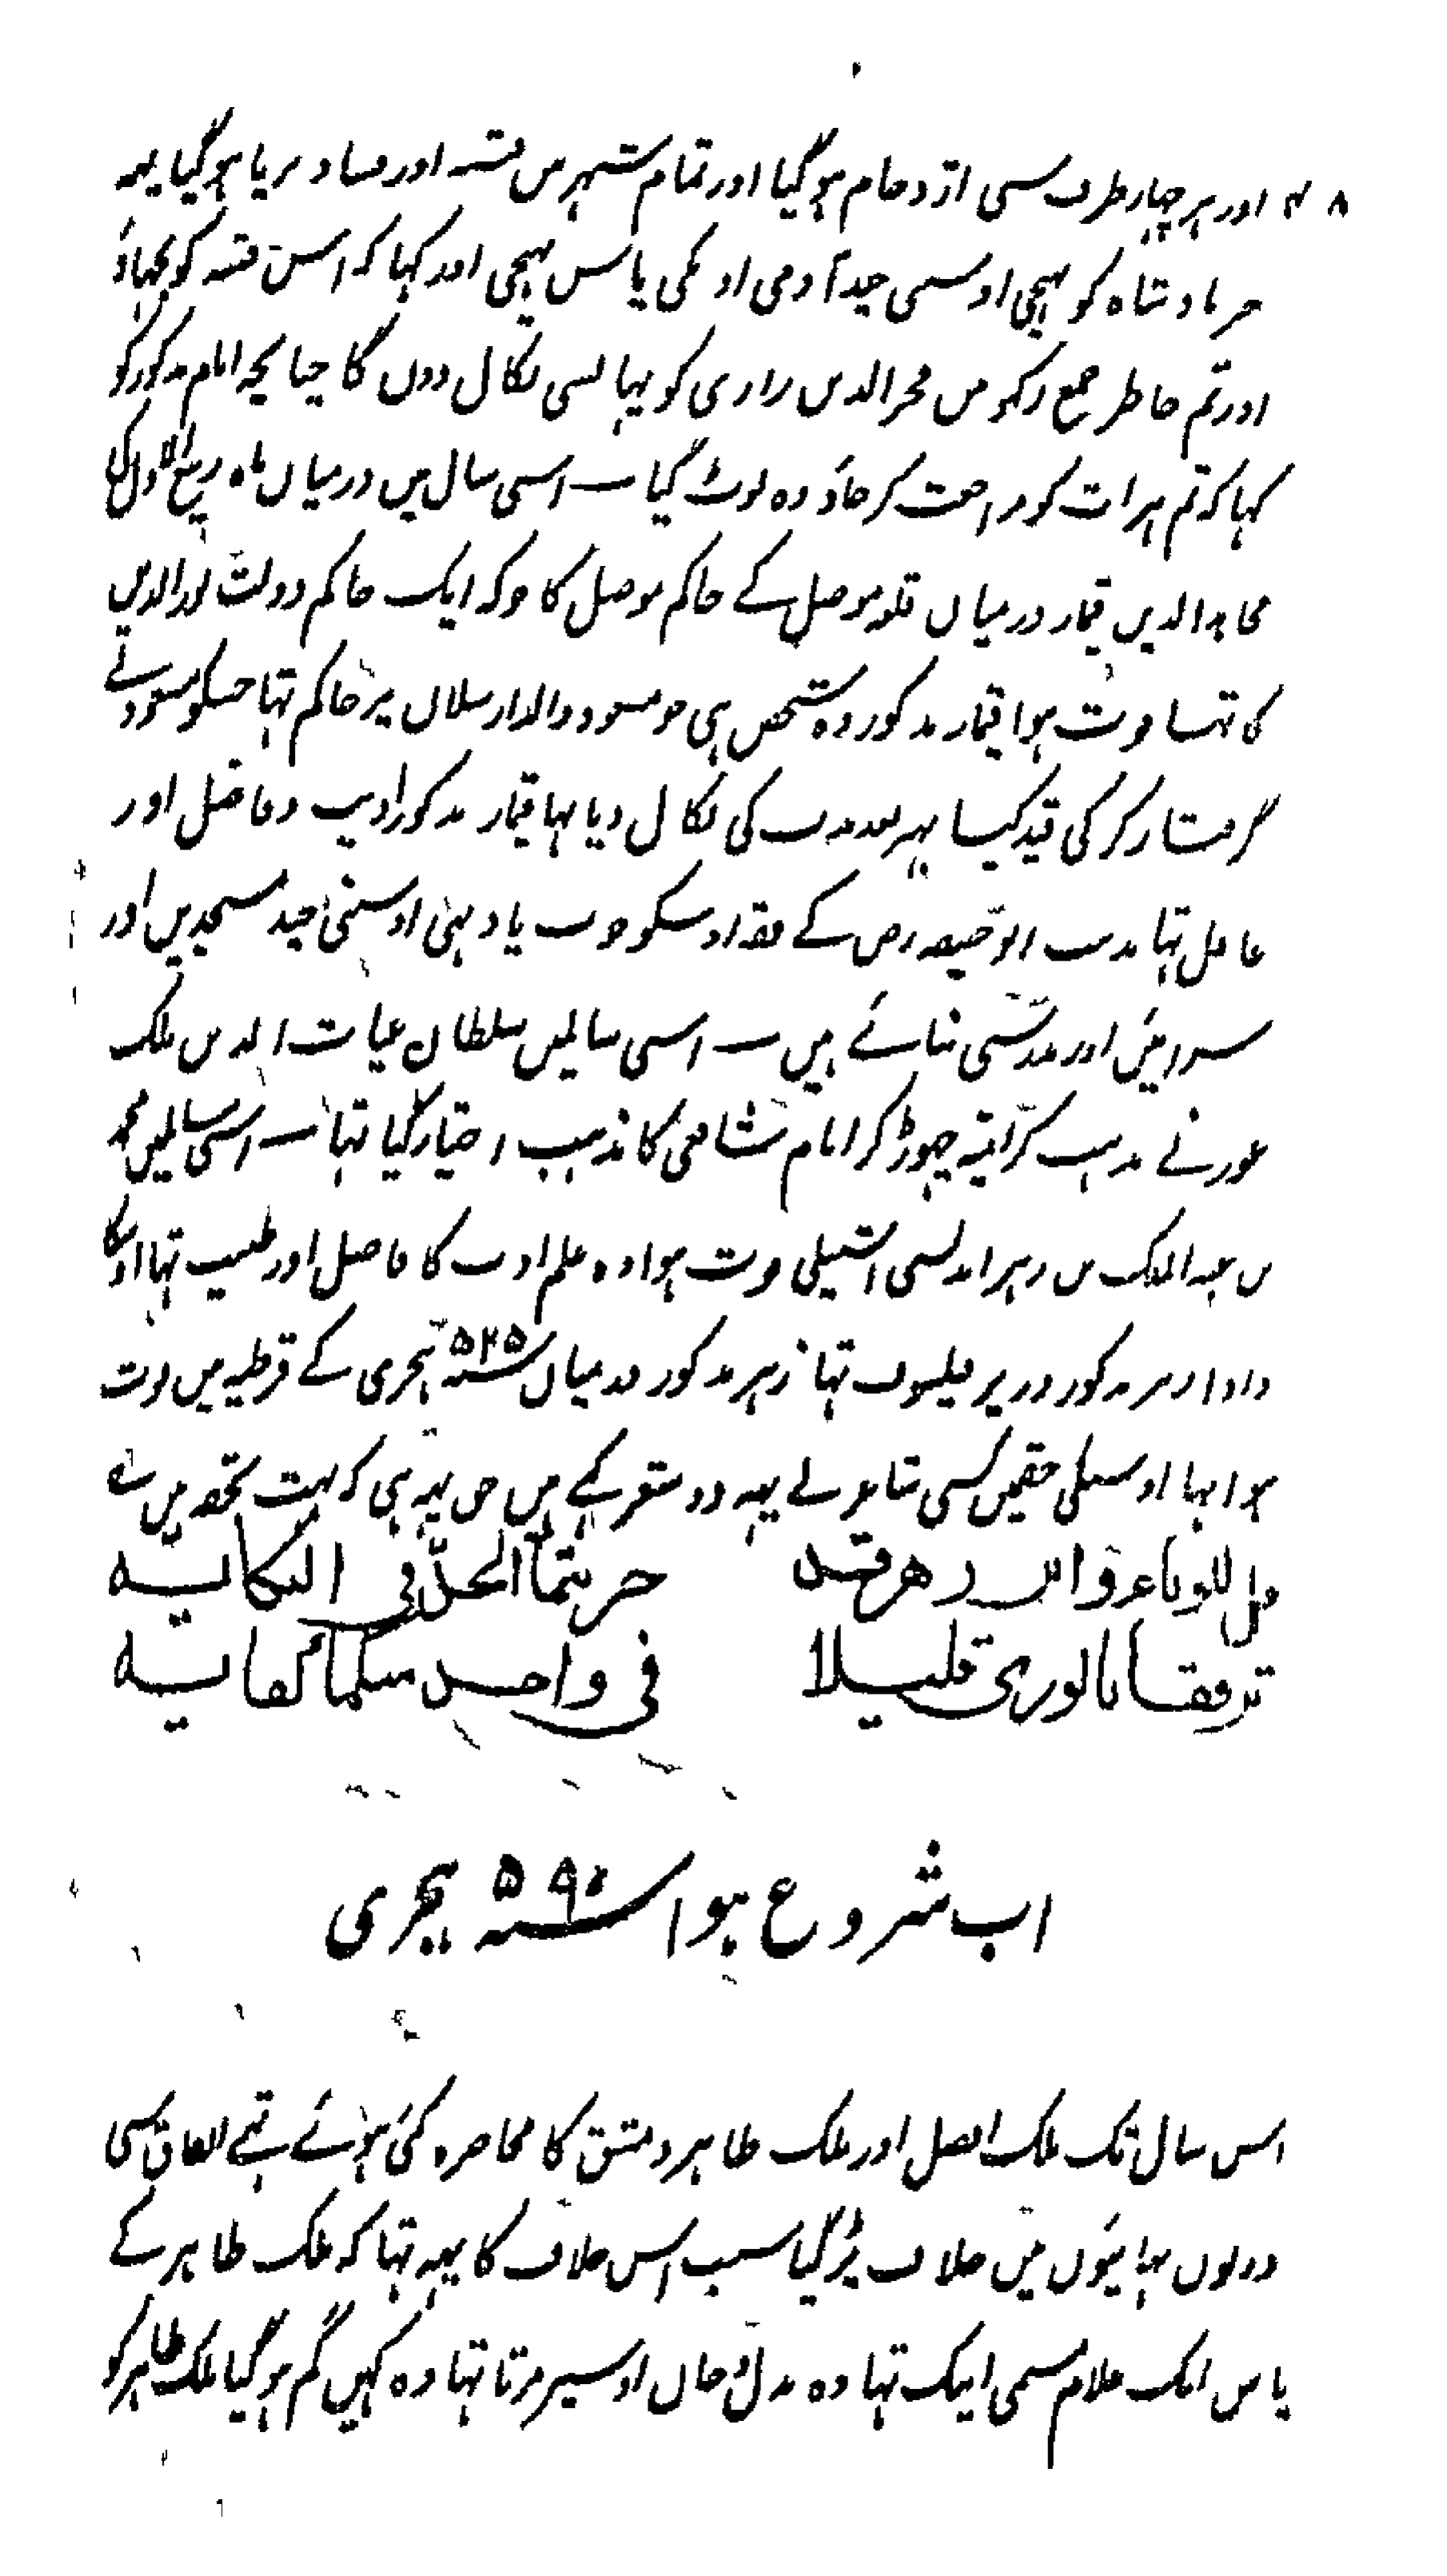 ۴۸ اور ہر چہار طرف سی ازدحام ہو گیا اور تمام شہر میں فتنہ اور فساد برپا ہو گیا یہہ
خبر بادشاہ کو پہنچی اوسنی چند آدمی اونکی پاس بہیجی اور کہا کہ اس فتنہ کو بجہاؤ
اور تم خاطر جمع رکہو میں فخر الدین رازی کو یہانسی نکال دوں گا چنانچہ امام مذکور کو
کہا کہ تم ہرات کو مراجعت کر جاؤ وہ لوٹ گیا ـ اسی سال میں درمیان ماہ ربیع الاول کی
مجاہد الدین قیماز درمیان قلعہ موصل کے حاکم موصل کا جو کہ ایک حاکم دولت نور الدین
کا تہا فوت ہوا قیماز مذکور وہ شخص ہی جو مسعود والد ارسلان پر حاکم تہا جسکو مسعود نے
گرفتار کر کی قید کیا پہر بعد مدت کی نکال دیا تہا قیماز مذکور ادیب و فاضل اور
عاقل تہا مذہب ابو حنیفہ رض کے فقہ اوسکو خوب یاد تہی اوسنی چند مسجدیں اور
سرائیں اور مدرسی بنائے ہیں ـ اسی سالمیں سلطان غیاث الدین ملک
غور نے مذہب کرامیہ چہوڑ کر امام شافعی کا مذہب اختیار کیا تہا ـ اسی سالمیں محمد
بن عبد الملک بن زہر اندلسی اشبیلی فوت ہوا وہ علم ادب کا فاضل اور طبیب تہا اوسکا
دادا زہر مذکور وزیر فیلسوف تہا زہر مذکور درمیان سنہ ۵۲۵ ہجری کے قرطبہ میں فوت
ہوا تہا اوسیکی حقمیں کسی شاعر نے یہہ دو شعر کہے ہیں جن یہہ ہی کہ بہت تحفہ ہیں ـ
قل للوباء وابن زهر قد جزتما الحدّ فی النکایه
ترفقا بالوری قلیلا فی واحد منکما کفایه
اب شروع ہوا سنہ ۵۹۰ ہجری
اس سال تک ملک افضل اور ملک ظاہر دمشق کا محاصرہ کئی ہوئے تہے اتفاق سی
دونوں بہائیوں میں خلاف پڑ گیا سبب اس خلاف کا یہہ تہا کہ ملک ظاہر کے
پاس ایک غلام مسمی ایبک تہا وہ بدل و جان اوسپر مرتا تہا وہ کہیں گم ہو گیا ملک ظاہر کو